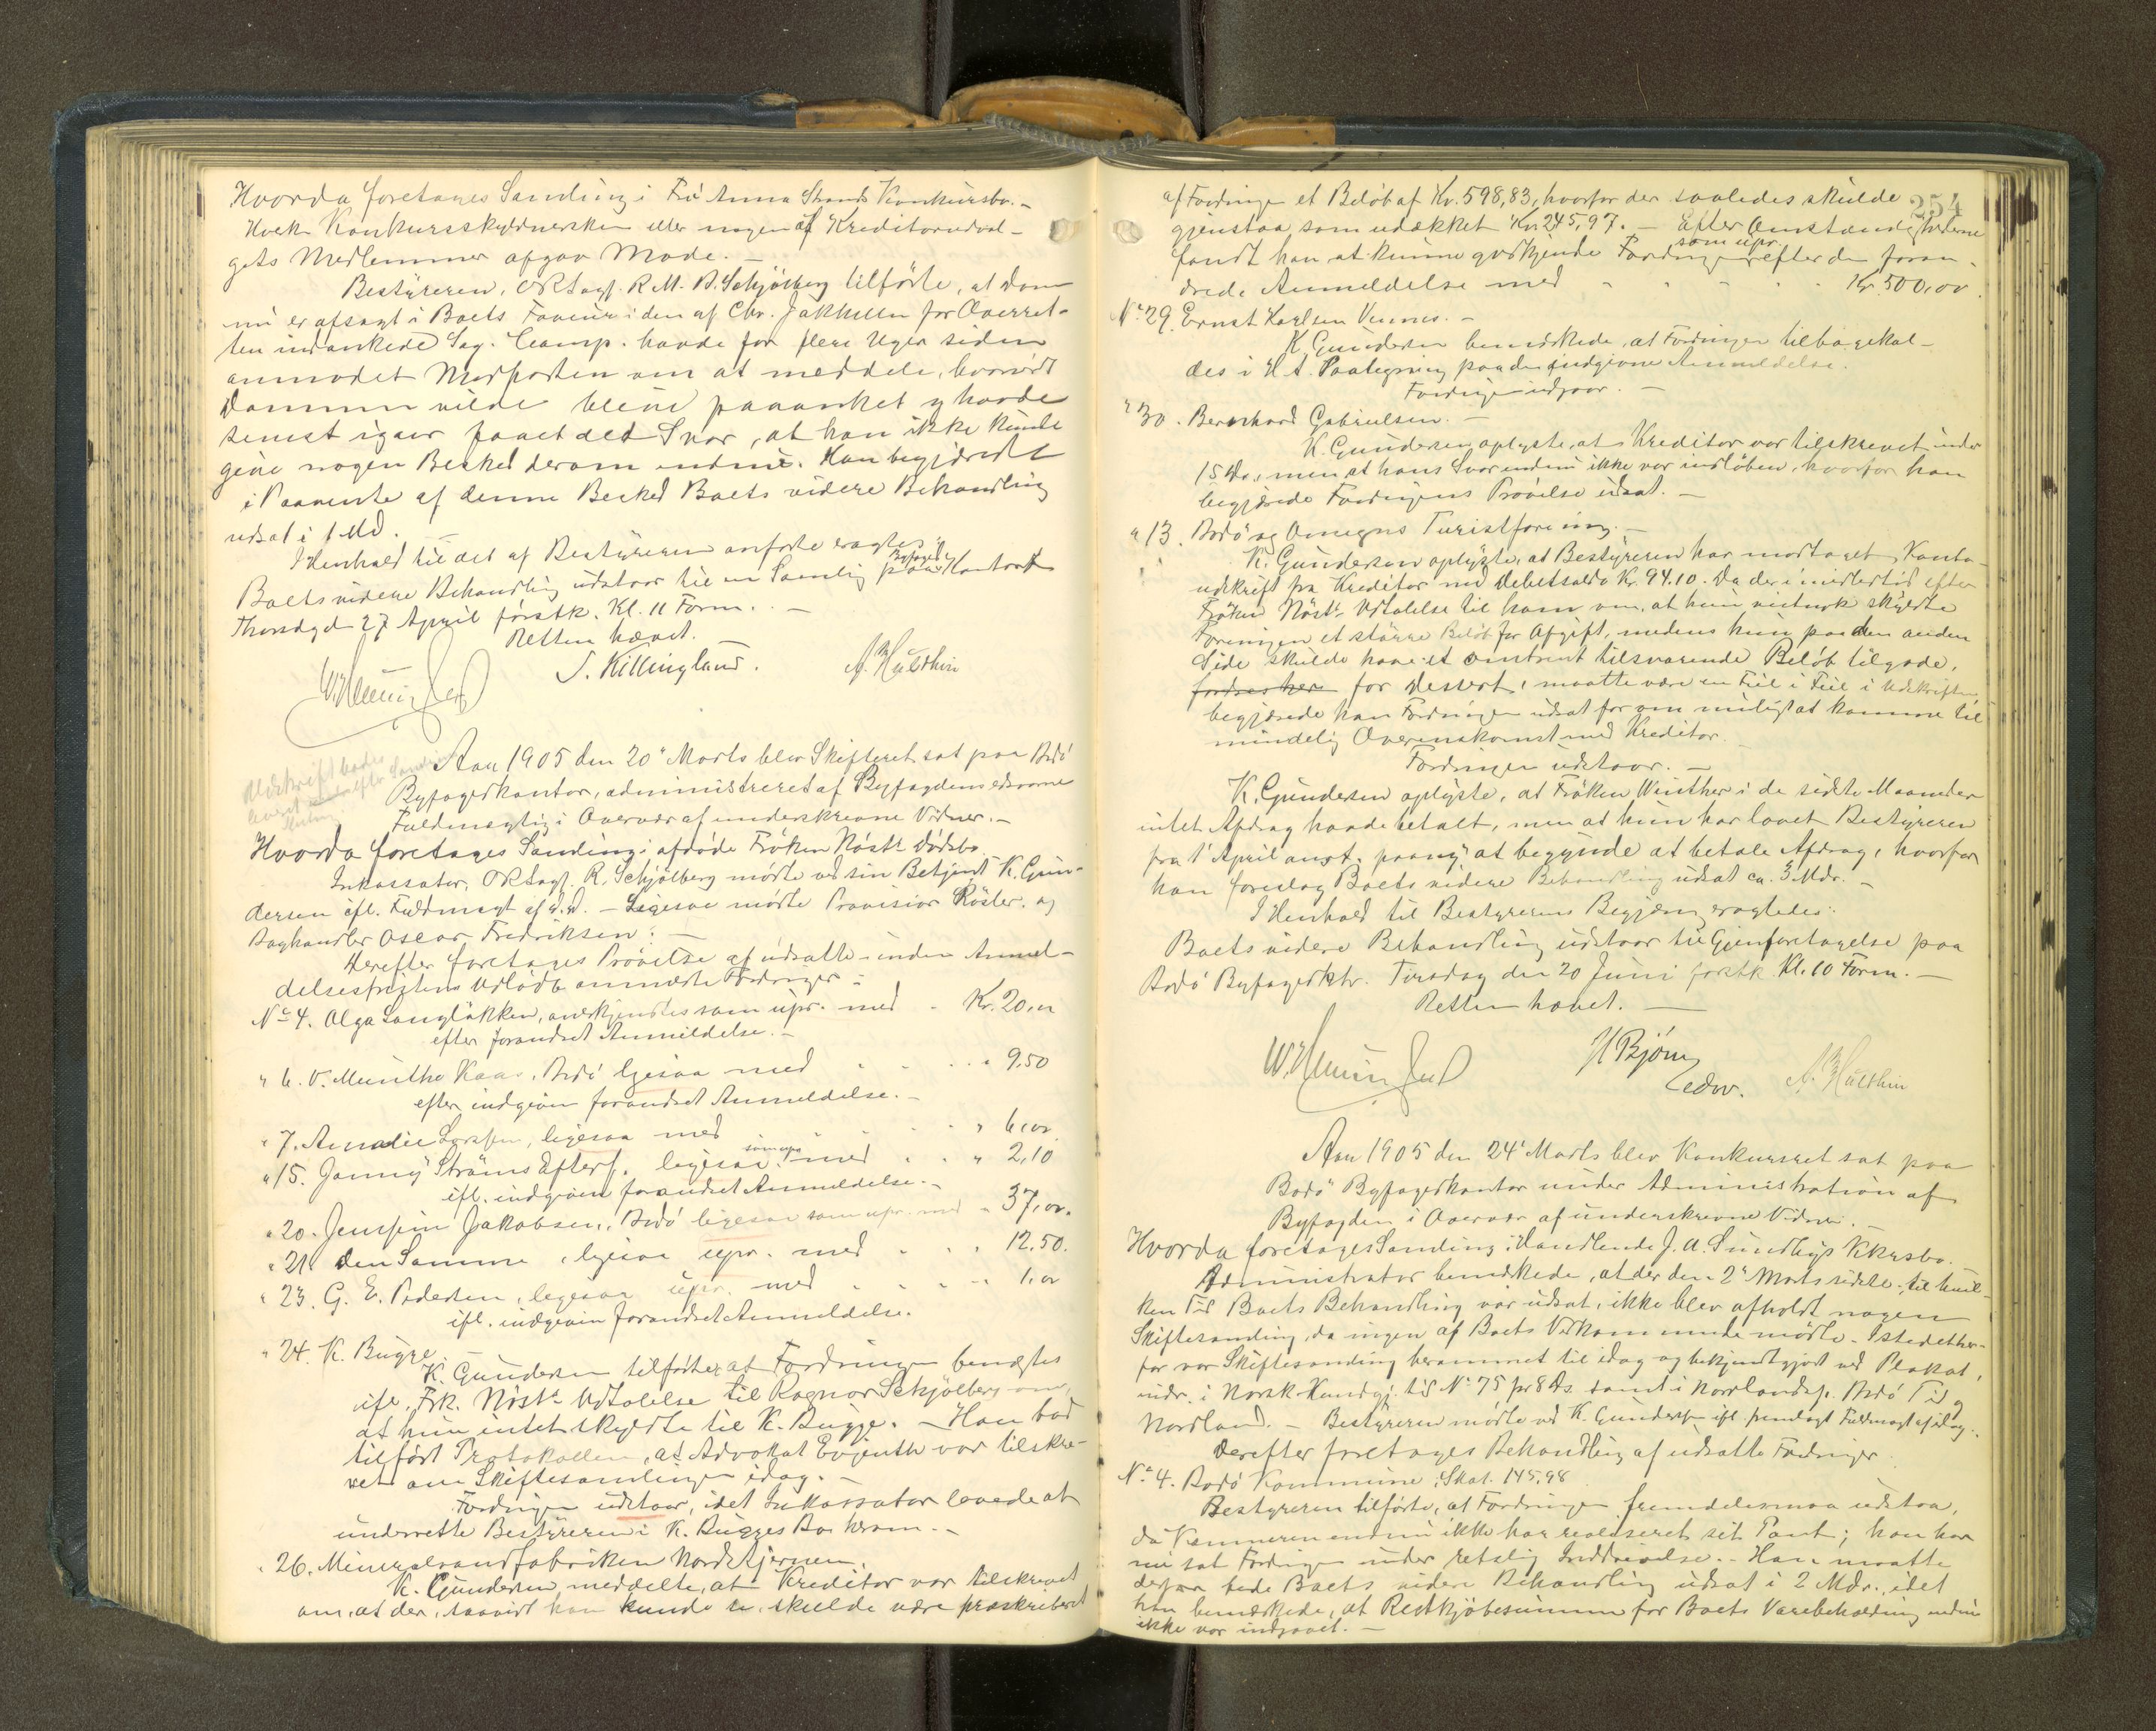 Hvorda foretages Samling i Frú Anna Strands Konkursbo. -
Hverken Konkursskyldnersken eller nogen af Kreditorudval-
gets Medlemmer afgav Møde. -
Bestyreren, ORSagf. R. M. B. Schjølberg tilførte, at Dom
nu er afsagt i Boets Faveur i den af Chr. Jakhelln for Overret-
ten indankede Sag. Comp. havde for flere Uger siden
anmodet Modparten om at meddele, hvorvidt
Dommen vilde blive paaanket og havde
senest igaar faaet det Svar, at han ikke kunde
give nogen Besked derom endnu. Han begjærede
i Paavente af denne Besked Boets videre Behandling
udsat i 1 Md.
I Henhold til det af Bestyreren anførte eragtes:
Boets videre Behandling udstaar til en Samling paa Byfogd. Kontoret
Thorsdag d 27 April førstk. Kl. 11 Form. -
Retten hævet.
S. Killingland. A. B. Hulthin
Udskrift
Aar 1905 den 20' Marts blev Skifteret sat paa Bodø
Byfogedkontor, administreret af Byfogdens edsvorne
Fuldmægtig i Overvær af underskrevne Vidner. -
Hvorda foretages Samling i afdøde Frøken Nøsts Dødsbo.
Inkassator, ORSagf. R. Schjølberg mødte ved sin Betjent K. Gun-
dersen ifl. Fuldmagt af d. D. - Ligesaa mødte Provisior Røsler og
Boghandler Oscar Fredriksen: -
Herefter foretages Prøvelse af udsatte - inden Anmel-
delsesfristens Udløb anmeldte Fordringer:
No 4. Olga Langløkken, anerkjendtes som upr. med - Kr. 20,00
efter forandret Anmeldelse. -
" 6. V. Munthe Kaas, Bodø ligesaa med . . . " 9,50
efter indgiven forandret Anmeldelse. -
" 7. Amalie Larsen, ligesaa med . . . " 6,00
" 15. Jonny Strøms Efterf. ligesaa som upr. med . . " 2,10
ifl. indgiven forandret Anmeldelse. -
" 20. Jensine Jakobsen, Bodø ligesaa som upr. med " 37,00.
" 21 den Samme, ligesaa upr. med . . . 12,50.
" 23. G. E. Pedersen, ligesaa upr. med . . . " 1,00
ifl. indgiven forandret Anmeldelse.
" 24. K. Bugge.
K. Gundersen tilførte, at Fordringen benægtes
ifl. Frk. Nøsts Udtalelse til Ragnar Schjølberg om,
at hun intet skyldte til K. Bugge. - Han bad
tilført Protokollen, at Advokat Evjenth var tilskre-
vet om Skiftesamlingen idag. -
Fordringen udstaar, idet Inkassator lovede at
underrette Bestyreren i K. Bugges Bo herom. -
" 26. Mineralvandfabriken Nordstjernen.
K. Gundersen meddelte, at Kreditor var tilskrevet
om, at der, saavidt han kunde se, skulde være præskriberet
254
af Fordringen et Beløb af Kr. 598,83, hvorfor der saaledes skulde
gjenstaa som udækket Kr. 245,97. - Efter Omstændighederne
fandt han at kunne godkjende Fordringen som upr. efter den foran-
drede Anmeldelse med . . . . Kr. 500,00.
No 29. Ernst Karlsen Vennes. -
K. Gundersen bemærkede, at Fordringen tilbagekal-
des i H. t. Paategning paa den indgivne Anmeldelse.
Fordringen udgaar. -
" 30. Bernhard Gabrielsen. -
K. Gundersen oplyste, at Kreditor var tilskrevet under
15 Ds., men at hans Svar endnu ikke var indløben, hvorfor han
begjærede Fordringens Prøvelse udsat. -
" 13. Bodø og Omegns Turistforening. -
K. Gundersen oplyste, at Bestyreren har modtaget Konto-
udskrift fra Kreditor med Debetsaldo Kr. 94.10. Da der imidlertid efter
Frøken Nøsts Udtalelse til ham om, at hun vistnok skyldte
Foreningen et større Beløb for Afgift, medens hun paa den anden
Side skulde have et omtrent tilsvarende Beløb tilgode,
fordres her for Dessert, maatte være en Feil i Feil i Udskriften
begjærede han Fordringen udsat for om muligt at komme til
mindelig Overenskomst med Kreditor.
Fordringen udstaar. -
K. Gundersen oplyste, at Frøken Winther i de sidste Maaneder
intet Afdrag havde betalt, men at hun har lovet Bestyreren
fra 1' April anst. paany at begynde at betale Afdrag, hvorfor
han foreslog Boets videre Behandling udsat ca. 3 Mdr. -
I Henhold til Bestyrerens Begjæring eragtedes:
Boets videre Behandling udstaar til Gjenforetagelse paa
Bodø Byfogedktr. Tirsdag den 20 Juni førstk. Kl. 10 Form. -
Retten hævet. -
H Bjørn
edsv. A. B. Hulthin
Aar 1905 den 24' Marts blev Konkursret sat paa
Bodø Byfogedkontor under Administration af
Byfogden i Overvær af underskrevne Vidner. -
Hvorda foretages Samling i Handlende J. A. Sundbys Kkursbo.
Administrator bemærkede, at der den 2' Marts sidstl. til hvil-
ken Tid Boets Behandling var udsat, ikke blev afholdt nogen
Skiftesamling, da ingen af Boets Vedkommende mødte. Istedether-
for var Skiftesamling berammet til idag og bekjendtgjort ved Plakat,
indr. i Norsk Kundgj. tid No 75 pr 8 Ds. samt i Nordlandsp. Bodø Tid. og
Nordland. - Bestyreren mødte ved K. Gundersen ifl. fremlagt Fuldmagt af idag.
Derefter foretages Behandling af udsatte Fordringer.
No 4. Bodø Kommune, Skat. 145,98
Bestyreren tilførte, at Fordringen fremdeles maa udstaa,
da Kæmneren endnu ikke har realiseret sit Pant; han har
nu sat Fordringen under retslig Inddrivelse. - Han maatte
derfor bede Boets videre Behandling udsat i 2 Mdr., idet
han bemærkede, at Restkjøbesummen for Boets Varebeholdning endnu
ikke var indgaaet. -